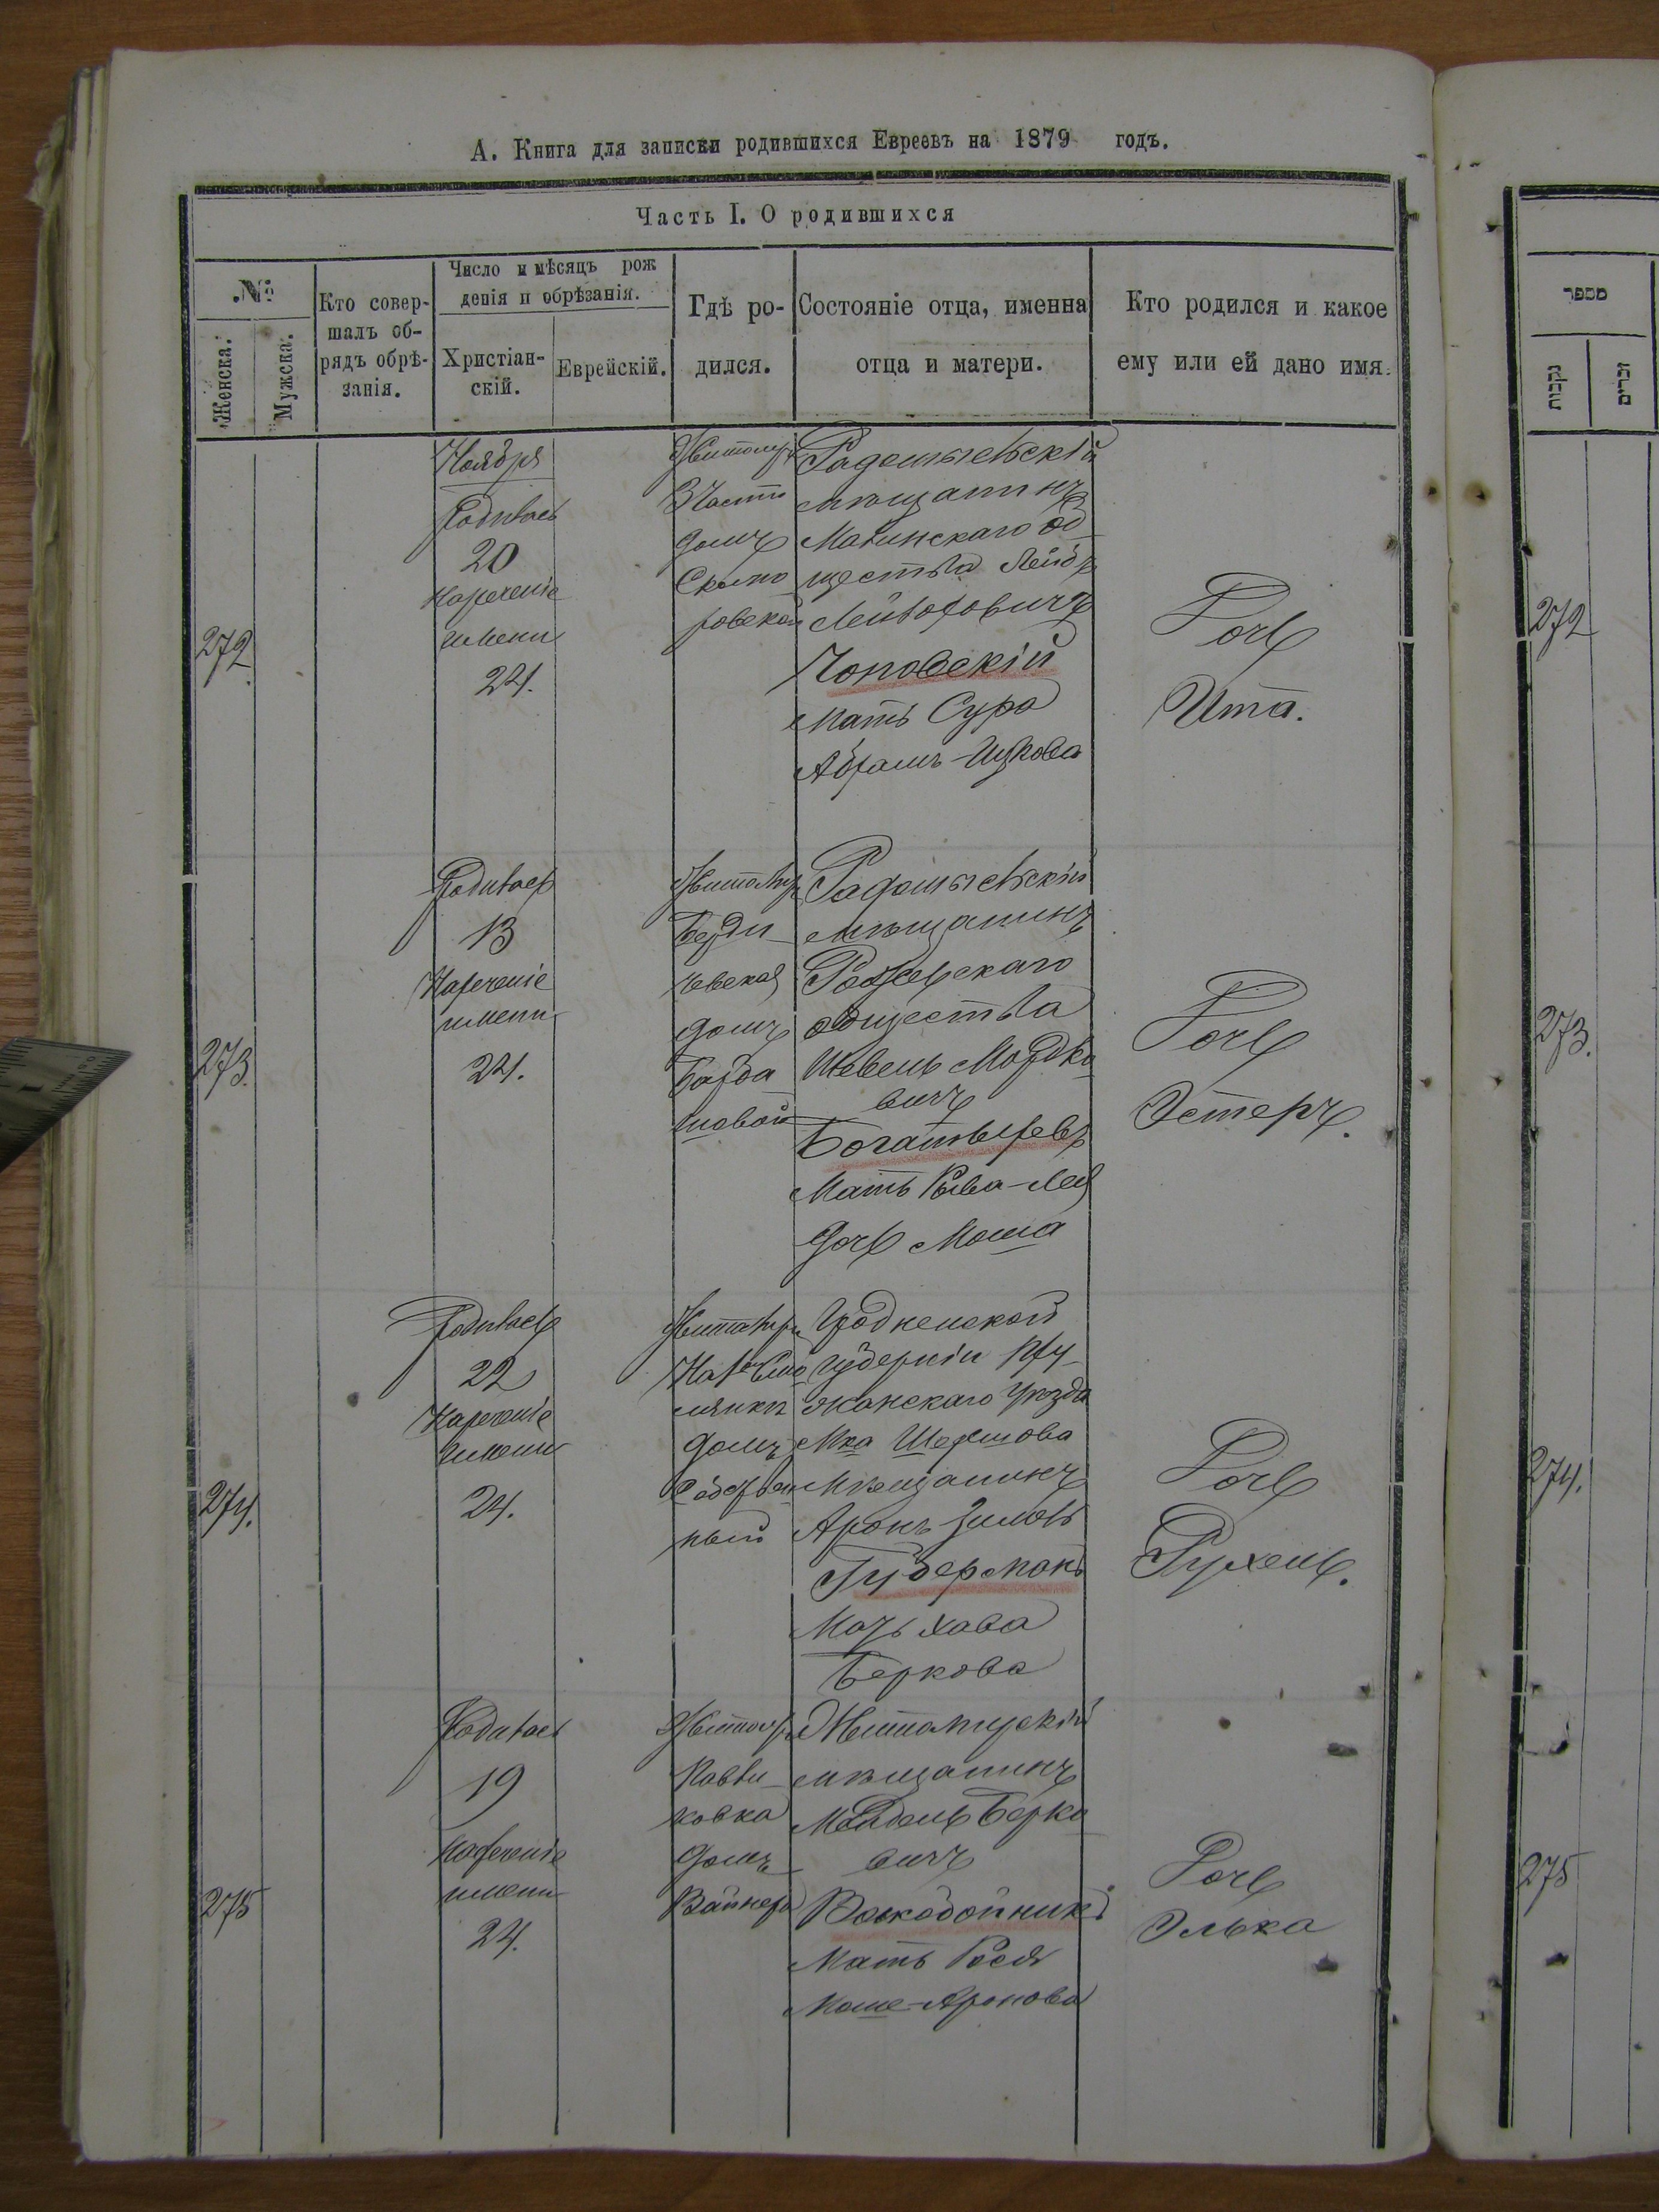 А. Книга для записки родившихся Евреевъ на 1879 годъ.
Часть I. О родившихся
№
Женска.
Мужска.
Кто совер-
шалъ об-
рядъ обрѣ-
занія.
Число и мѣсяцъ рож
денія и обрѣзанія.
Христіан-
скій.
Еврейскій.
Гдѣ ро-
дился.
Состояніе отца, именна
отца и матери.
Кто родился и какое
ему или ей дано имя.
272
Ноября
Родилась
20
Нареченіе
имени
24.
Житомиръ
3 Части
домъ
ровской
Радомысльскій
мѣщанинъ
Малинскаго об-
щества Лейбъ
Лейбовичъ
Чоповскій
Мать Сура
Абрамъ-Ицкова
Дочь
Ита.
273.
Родилась
13
Нареченіе
имени
24.
Житомиръ
Берди-
чевская
домъ
Радомысльскій
мѣщанинъ
общества
Шевель Мордко-
вичъ
Богатыревъ
Мать Рыва-Лея
дочь Моша
Дочь
Эстеръ.
274.
Родилась
22
Нареченіе
имени
24.
Житомиръ
домъ
собствен
ный
Гродненской
губерніи Пру-
жанскаго уѣзда
М-ка Шерешова
Мѣщанинъ
Аронъ
Губерманъ
Мать Хава
Беркова
Дочь
Рухель.
275
Родилась
19
Нареченіе
имени
24.
Житомиръ
домъ
Вайнера
Житомирскій
мѣщанинъ
Мендель Берко-
вичъ
Воскобойникъ
Мать Рося
Моше-Аронова
Дочь
Элька
מספר
נקבות
זכרים
272
273.
274.
275